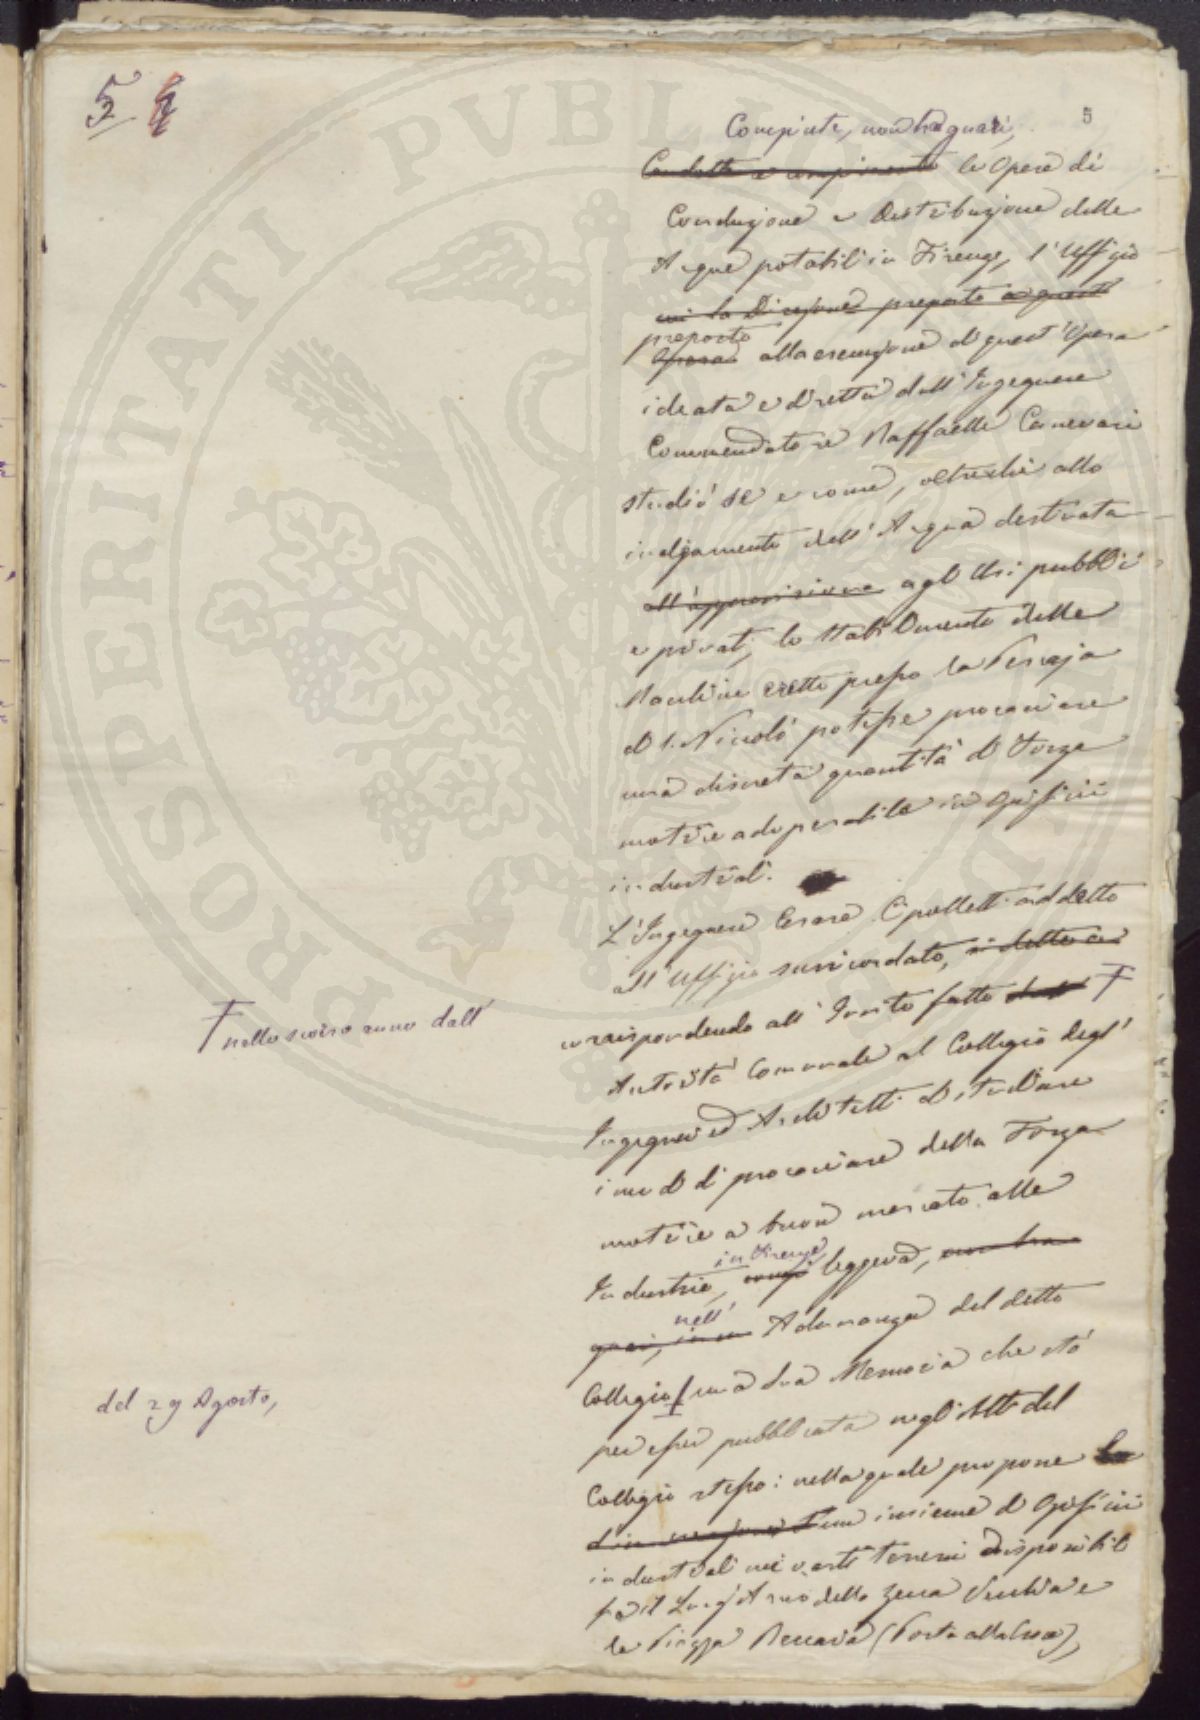 5
5
Compiute, non ha guari,
Condotte a compimento le Opere di
Conduzione e Distribuzione delle
Acque potabili in Firenze, l'Uffizio
cui la Direzione preposto a questa
preposto
Opera alla esecuzione di quest'Opera
ideata e diretta dall'Ingegnere
Commendatore Raffaelle Canevari
studiò se e come, oltreché allo
inalzamento dell'Acqua destinata
all' agli Usi pubblici
e privati, lo Stabilimento delle
Macchine eretto presso la Pescaja
di S. Niccolò potesse procacciare
una discreta quantità di Forza
motrice adoperabile in Opificii
industriali.
L'Ingegnere Cesare Cipolletti addetto
all'Uffizio surricordato, si dette a
corrispondendo all'Invito fatto
nello scorso anno dall'
Autorità Comunale al Collegio degl'
Ingegneri ed Architetti di studiare
i modi di procacciare della Forza
motrice a buon mercato alle
in Firenze
Industrie, leggeva, non ha
nell'
guari, in un Adunanza del detto
Collegio una sua Memoria che sta
del 29 Agosto,
per esser pubblicata negli Atti del
Collegio stesso: nella quale propone
un insieme di Opificii
industriali nei vasti terreni disponibili
fra il Lung'Arno della Zecca Vecchia e
la Piazza Beccaria (Porta alla Croce),
PROSPERITATI PVBLICAE